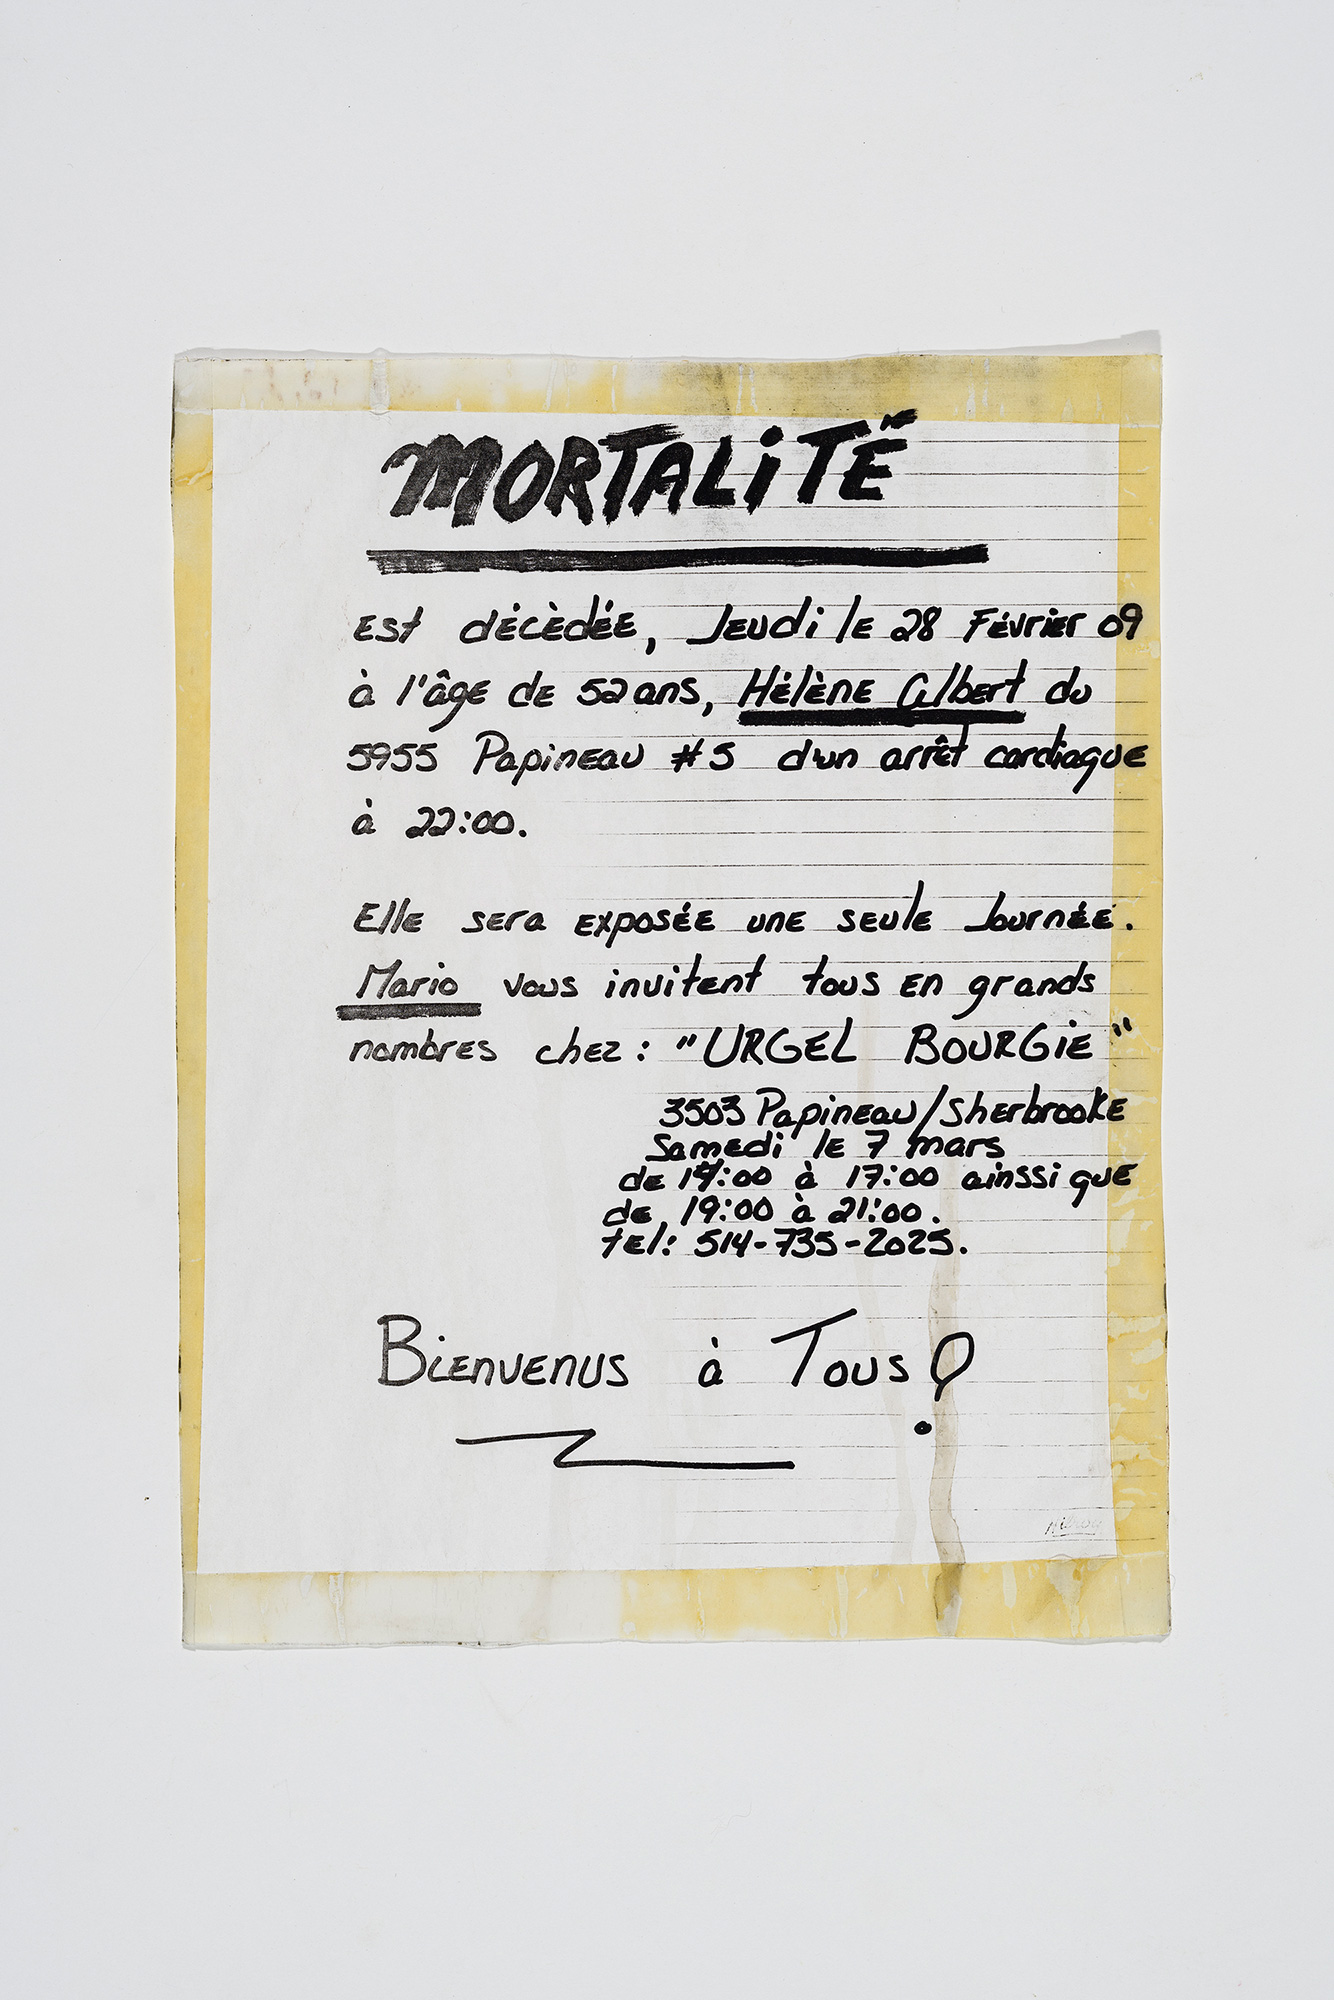 MORTALiTÉ
Est décèdée, Jeudi le 28 Février 09
à l'âge de 52 ans, Hélène Albert du
5955 Papineau #5 d'un arrêt cardiaque
à 22:00.
Elle sera exposée une seule Journée.
Mario vous invitent tous en grands
nombres chez: "URGEL BOURGiE"
3503 Papineau/Sherbrooke
Samedi le 7 mars
de 14:00 à 17:00 ainssi que
de 19:00 à 21:00.
tel: 514-735-2025.
Bienvenus à Tous!